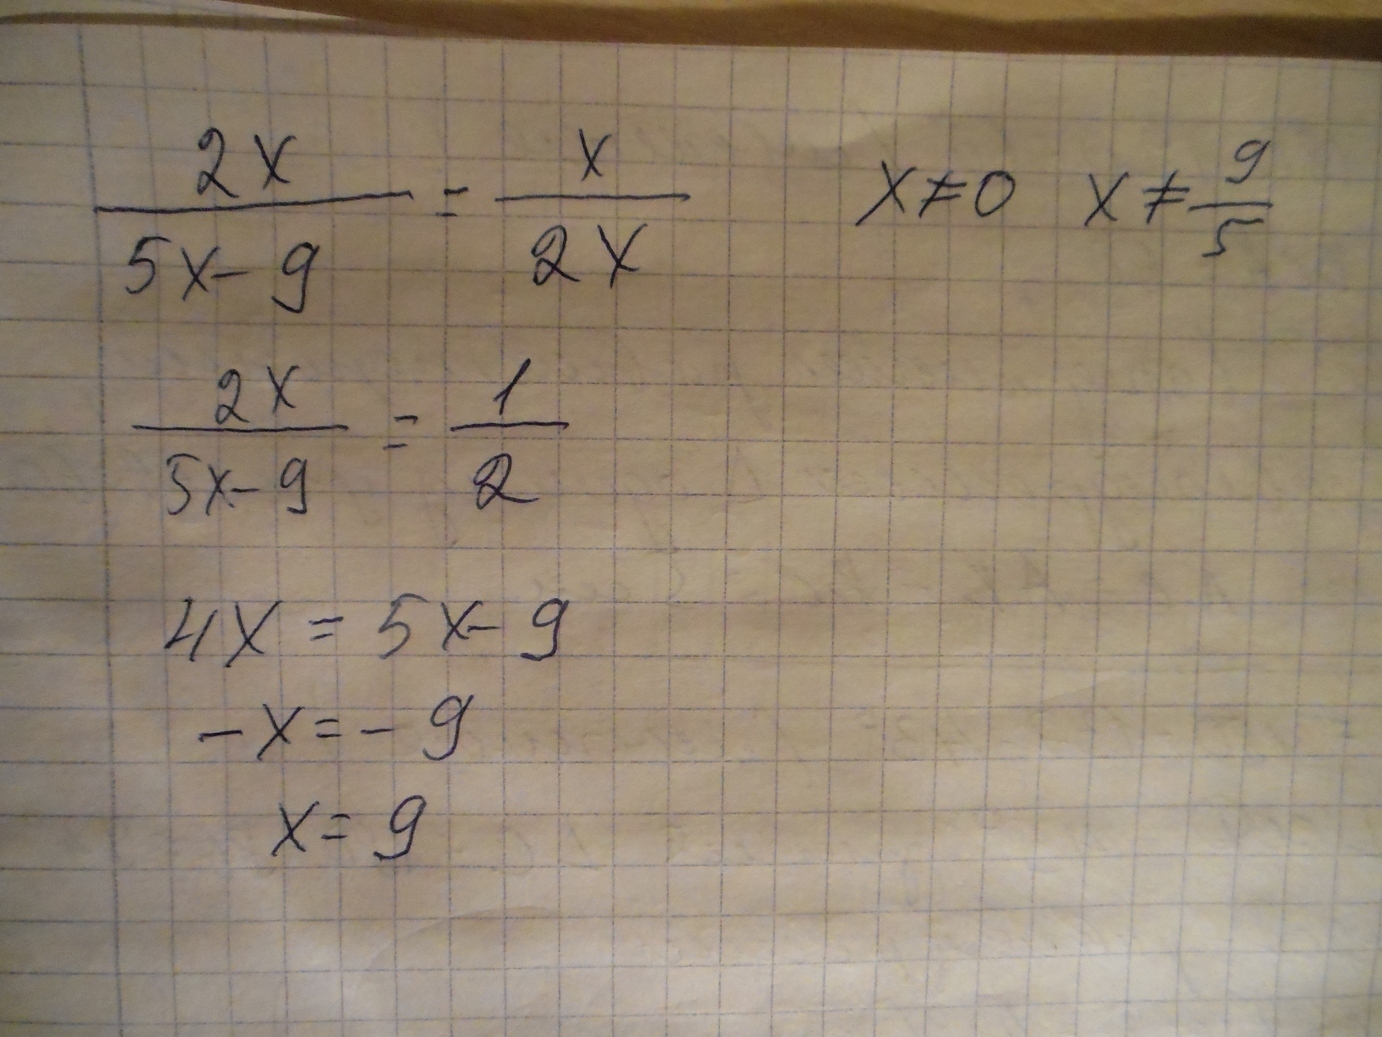 2x/(5x-9) = x/(2x)   x≠0   x≠9/5
2x/(5x-9) = 1/2
4x = 5x-9
-x = -9
x = 9